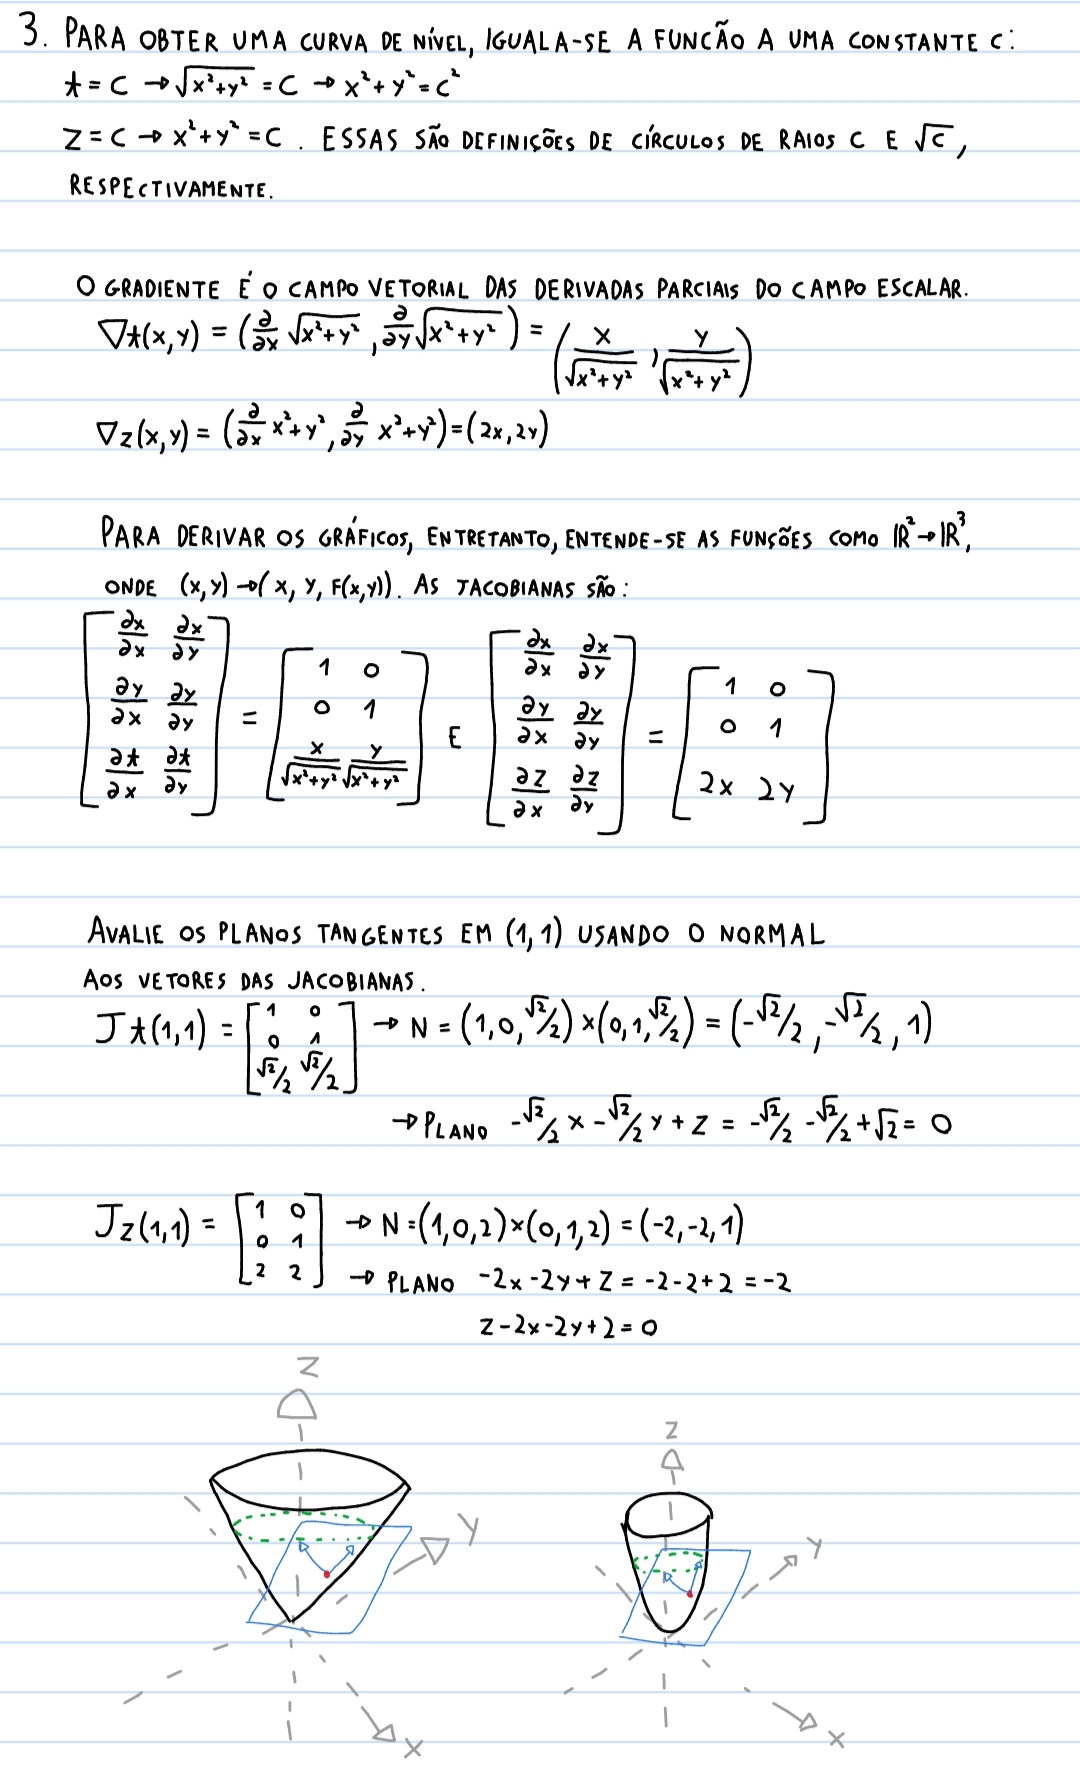 3. PARA OBTER UMA CURVA DE NÍVEL, IGUALA-SE A FUNCÃO A UMA CONSTANTE C:
t = C → √(x²+y²) = C → x²+y² = c²
Z = C → x²+y² = C . ESSAS SÃO DEFINIÇÕES DE CÍRCULOS DE RAIOS C E √C,
RESPECTIVAMENTE.
O GRADIENTE É O CAMPO VETORIAL DAS DERIVADAS PARCIAIS DO CAMPO ESCALAR.
∇t(x,y) = (∂/∂x √(x²+y²), ∂/∂y √(x²+y²)) = (x/√(x²+y²), y/√(x²+y²))
∇z(x,y) = (∂/∂x x²+y², ∂/∂y x²+y²) = (2x,2y)
PARA DERIVAR OS GRÁFICOS, ENTRETANTO, ENTENDE-SE AS FUNÇÕES COMO ℝ²→ℝ³,
ONDE (x,y)→(x, y, F(x,y)). AS JACOBIANAS SÃO:
[∂x/∂x ∂x/∂y; ∂y/∂x ∂y/∂y; ∂t/∂x ∂t/∂y] = [1 0; 0 1; x/√(x²+y²) y/√(x²+y²)] E [∂x/∂x ∂x/∂y; ∂y/∂x ∂y/∂y; ∂z/∂x ∂z/∂y] = [1 0; 0 1; 2x 2y]
AVALIE OS PLANOS TANGENTES EM (1,1) USANDO O NORMAL
AOS VETORES DAS JACOBIANAS.
Jt(1,1) = [1 0; 0 1; √2/2 √2/2] → N = (1,0,√2/2)×(0,1,√2/2) = (-√2/2, -√2/2, 1)
→ PLANO -√2/2 x - √2/2 y + z = -√2/2 - √2/2 + √2 = 0
Jz(1,1) = [1 0; 0 1; 2 2] → N = (1,0,2)×(0,1,2) = (-2,-2,1)
→ PLANO -2x-2y+z = -2-2+2 = -2
z-2x-2y+2=0
Z
Z
Y
Y
X
X